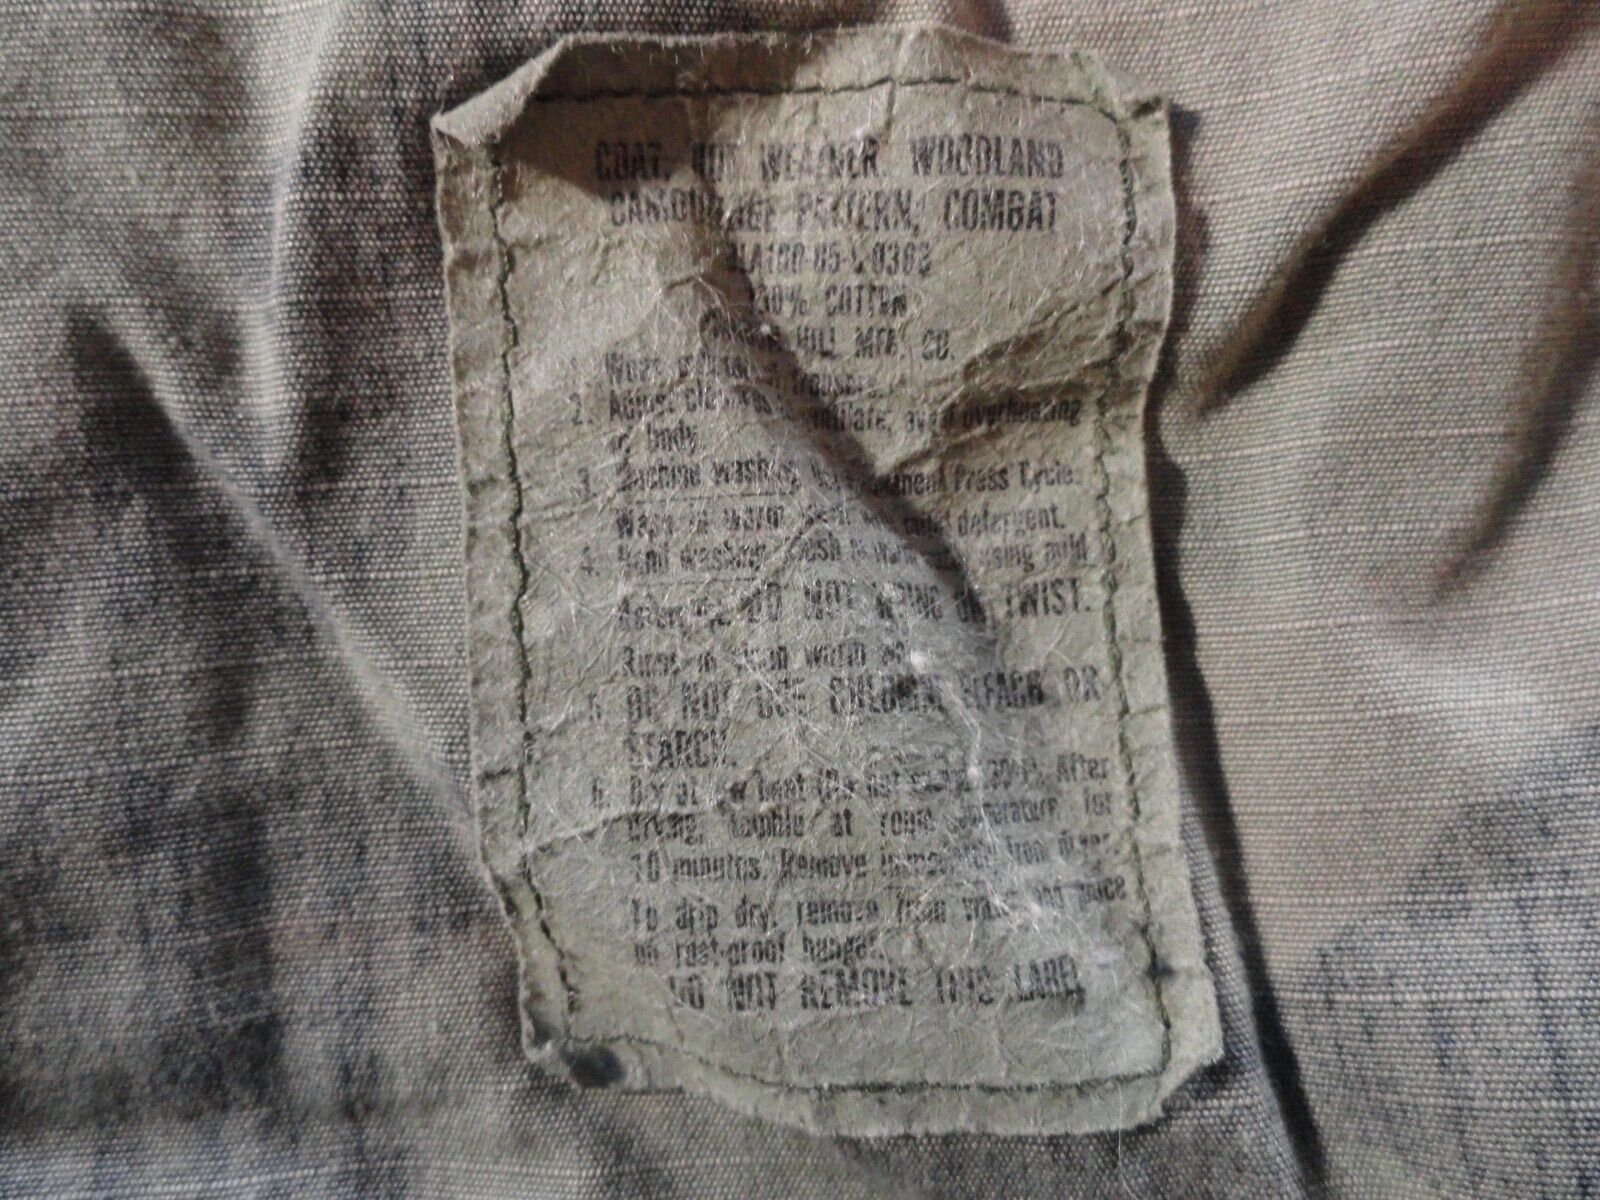 COAT, HOT WEATHER, WOODLAND
CAMOUFLAGE PATTERN, COMBAT
COTTON
HILL MFG. CO.
1. Wear trousers.
2. Adjust ventilate, avoid overheating
of body.
3. Machine washing: Use Permanent Press Cycle.
Wash in warm detergent.
4. Hand washing: Wash in using mild
detergent. DO NOT WRING OR TWIST.
Rinse in clean warm
5. DO NOT USE CHLORINE BLEACH OR
STARCH.
6. Dry at low heat (Do not After
drying, tumble at room temperature for
10 minutes. Remove immediately from dryer.
To drip dry, remove from water and place
on rust-proof hanger.
DO NOT REMOVE THIS LABEL